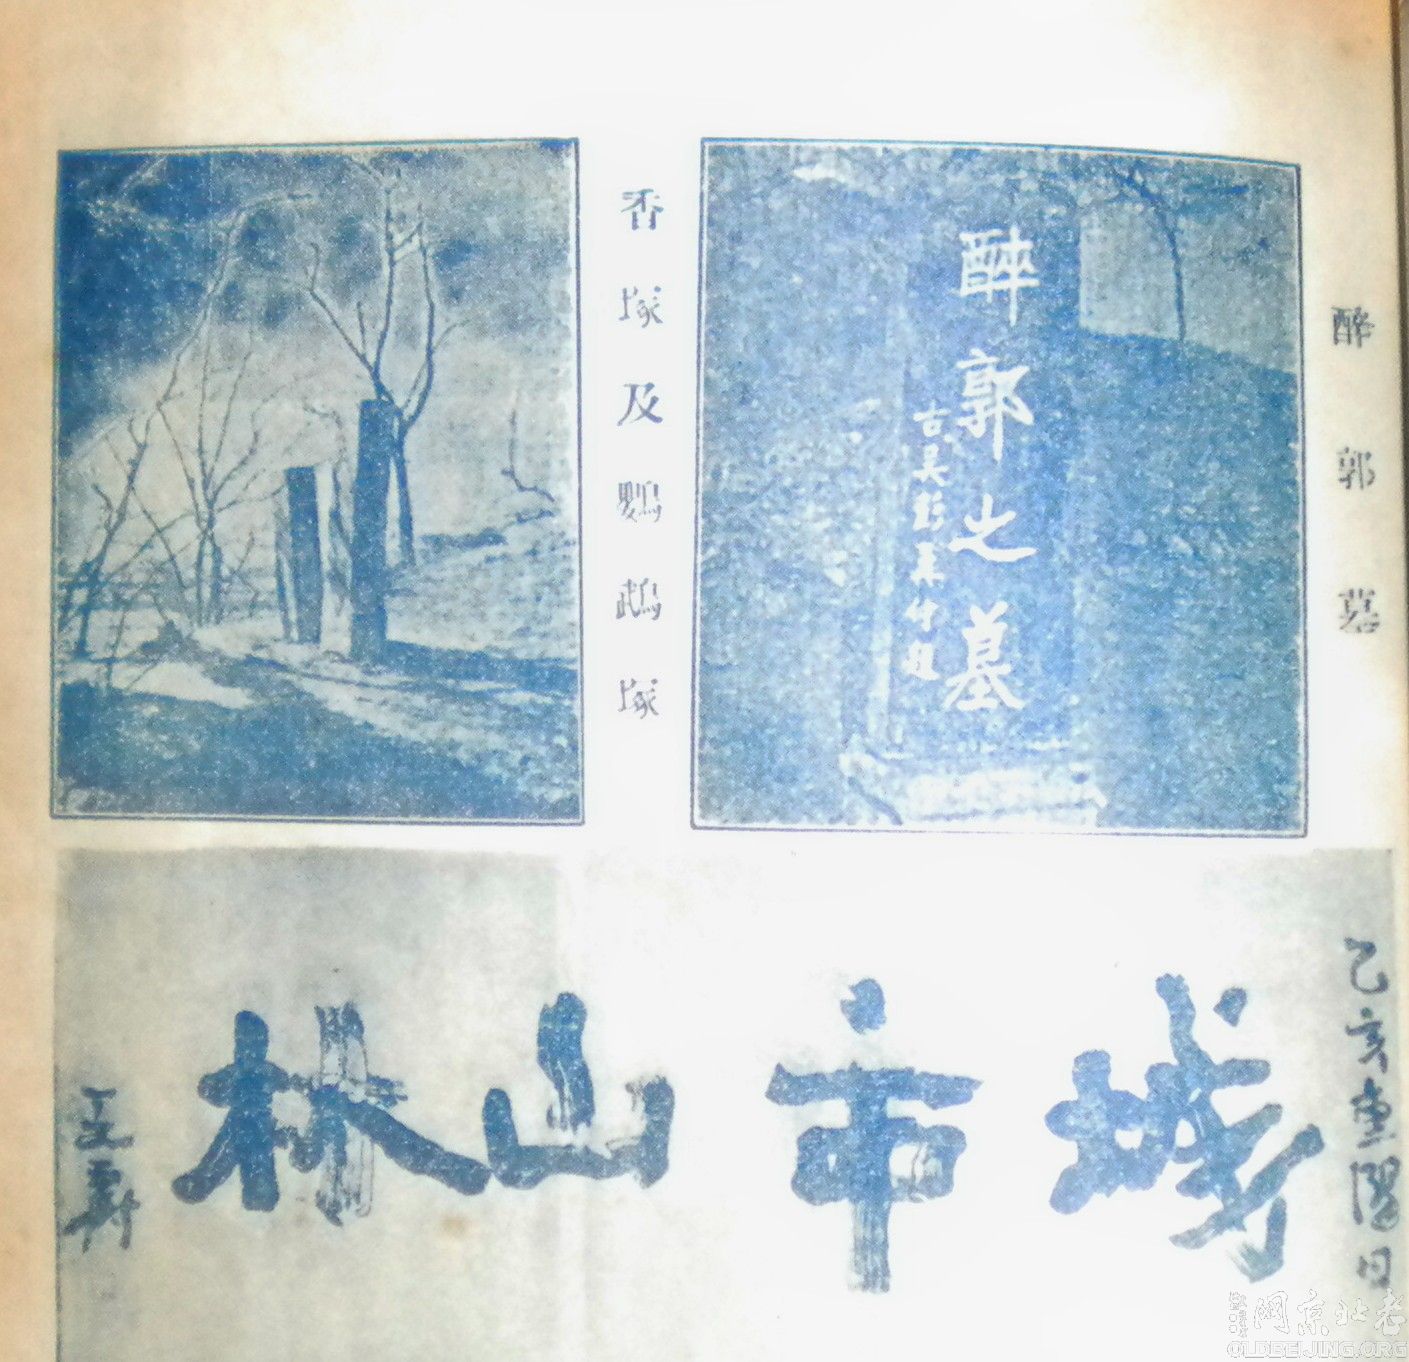 醉郭墓
醉郭之墓
古吳彭翼仲題
香塚及鸚鵡塚
乙亥重陽日
城市山林
老北京网
OLDBEIJING.ORG